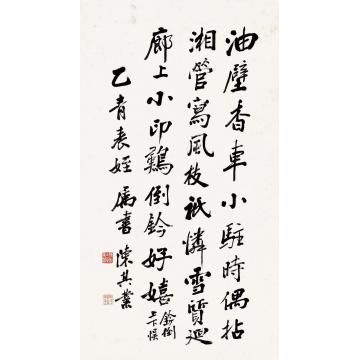 油壁香車小駐時偶拈
湘管寫風枝祇憐雪質迴
廊上小印鷄倒鈐好嬉
鈐倒
上悞
乙青表姪屬書 陳其業